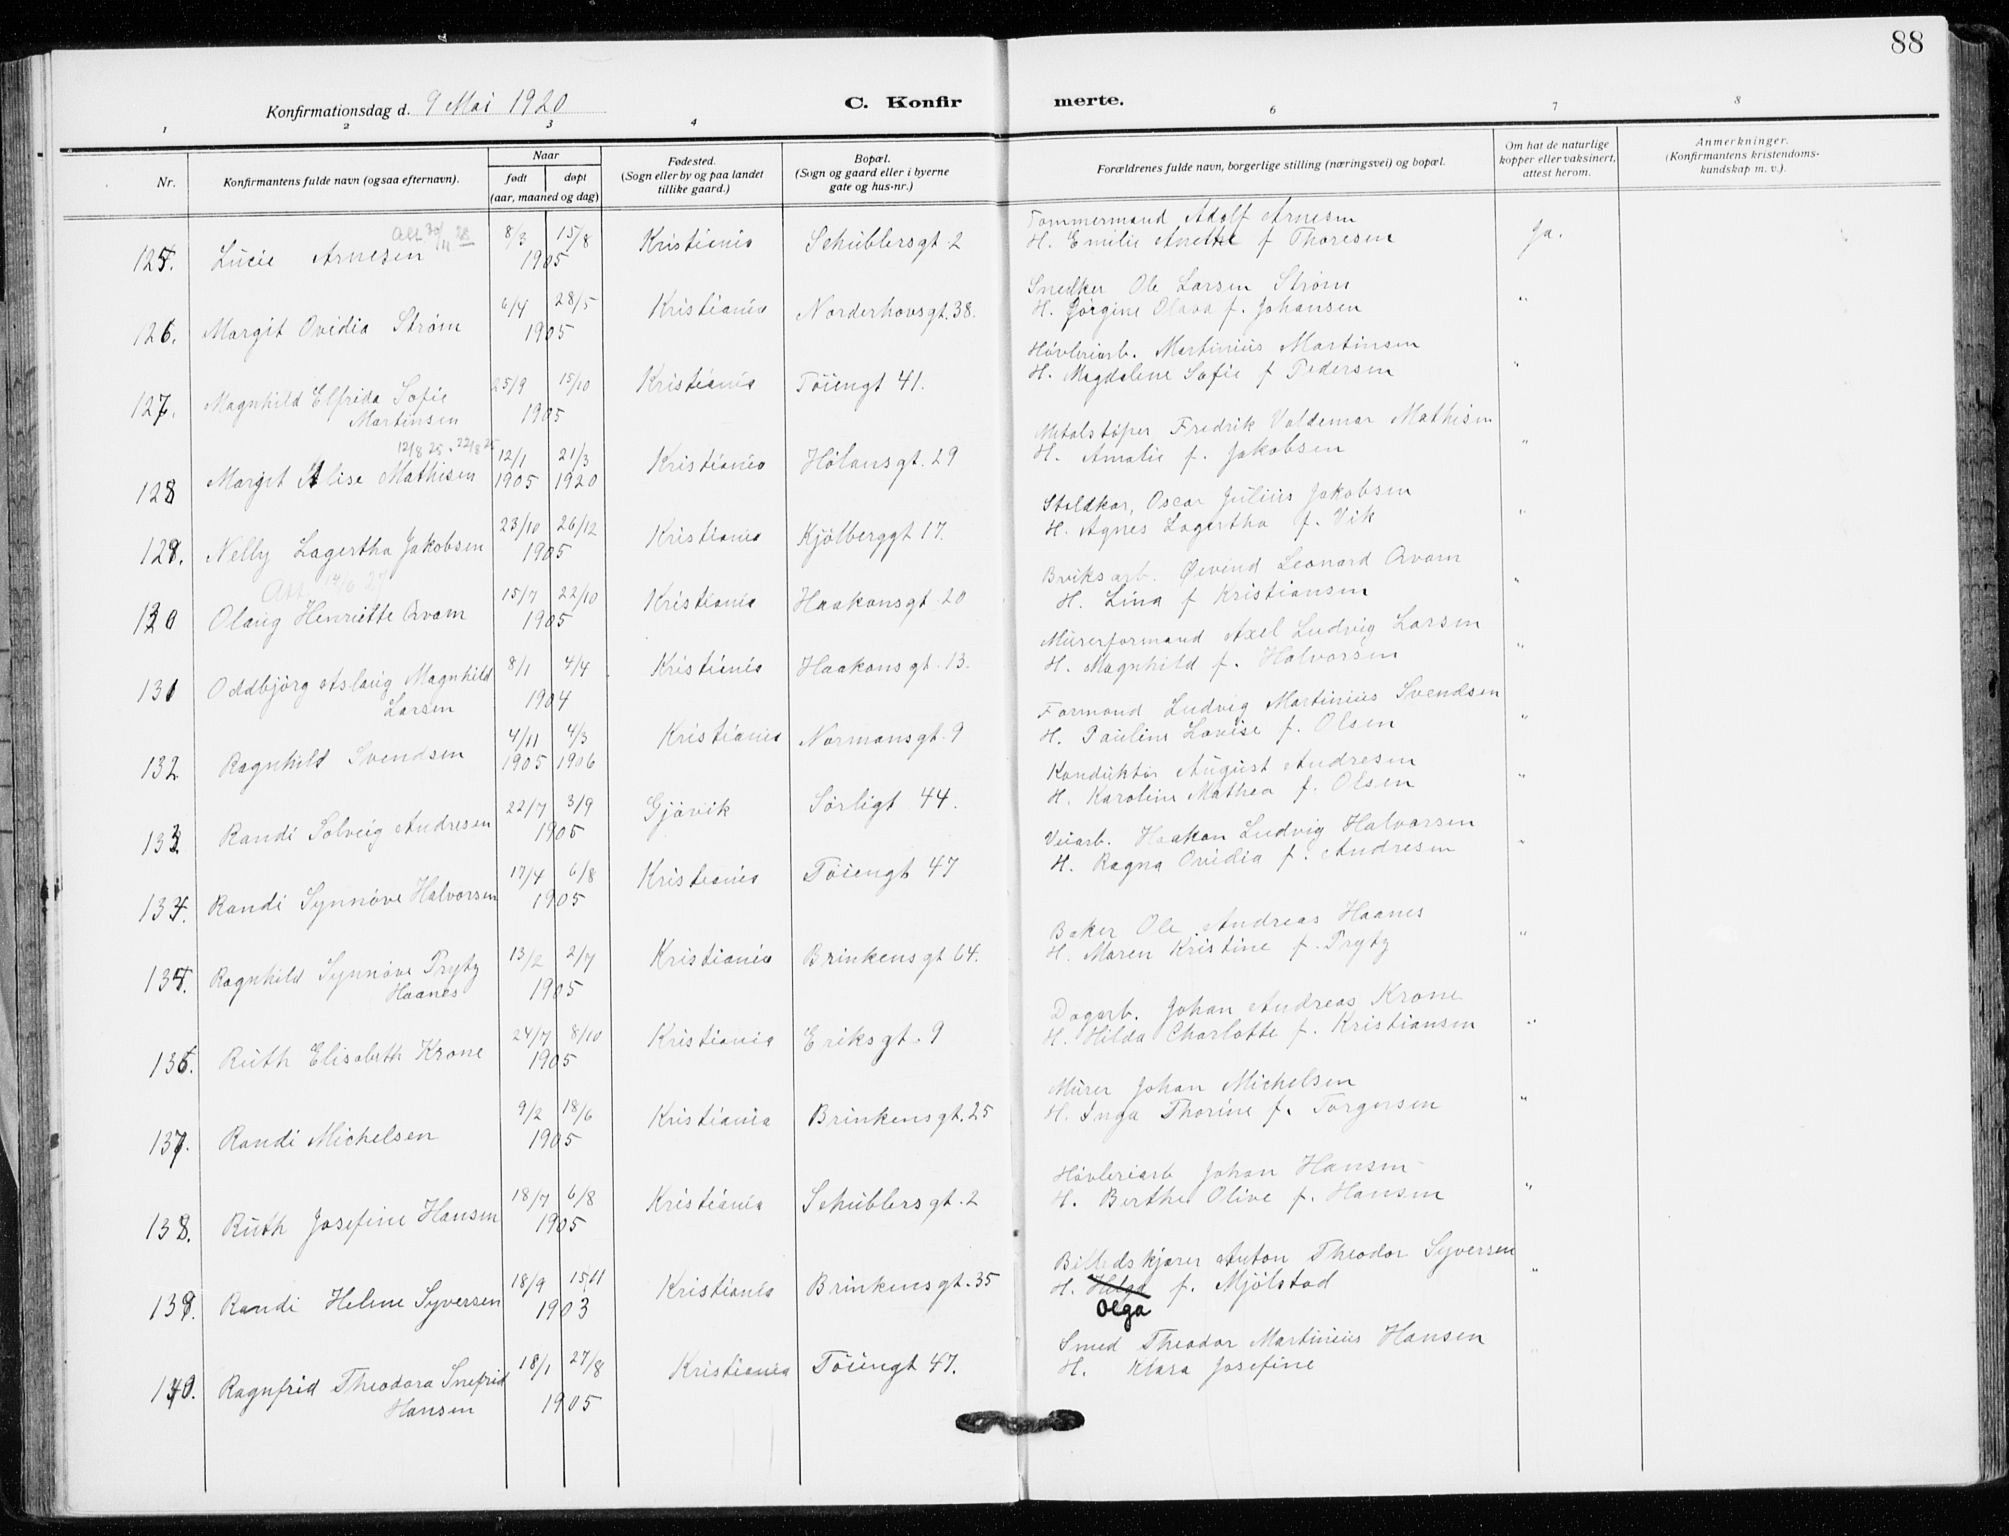 88
Konfirmationsdag d. 9 Mai 1920
C. Konfirmerte.
1 2 3 4 6 7 8
Nr.
Konfirmantens fulde navn (ogsaa efternavn).
Naar
født døpt
(aar, maaned og dag)
Fødested.
(Sogn eller by og paa landet
tillike gaard.)
Bopæl.
(Sogn og gaard eller i byerne
gate og hus-nr.)
Forældrenes fulde navn, borgerlige stilling (næringsvei) og bopæl.
Om hat de naturlige
kopper eller vaksinert,
attest herom.
Anmerkninger.
(Konfirmantens kristendoms-
kundskap m. v.).
Att 30/11 28
125. Lucie Arnesen 8/3 15/8 1905 Kristiania Schüblersgt. 2
Tømmermand Adolf Arnesen
H. Emilie Anette f Thoresen Ja.
126. Margit Ovidia Strøm 6/4 28/5 1905 Kristiania Norderhovsgt. 38.
Snedker Ole Larsen Strøm
H. Jørgine Olava f. Johansen "
127. Magnhild Elfrida Sofie
Martinsen 25/9 15/10 1905 Kristiania Töiengt 41.
Høvleriarb. Martinius Martinsen
H. Magdalene Sofie f Pedersen "
12/8 25. 22/8 25
128 Margit Alise Mathisen 12/1 1905 21/3 1920 Kristiania Hølansgt. 29
Metalstøper Fredrik Valdemar Mathisen
H. Amalie f. Jakobsen "
129. Nelly Lagertha Jakobsen 23/10 26/12 1905 Kristiania Kjölberggt 17.
Oscar Julius Jakobsen
H. Agnes Lagertha f. Vik "
Att 14/6 27
130 Olaug Henriette Qvam 15/7 22/10 1905 Kristiania Haakonsgt. 20
Bruksarb. Øivind Leonard Qvam
H. Lina f Kristiansen "
131 Oddbjörg Aslaug Magnhild
Larsen 8/1 4/4 1904 Kristiania Haakonsgt. 13.
Murerformand Axel Ludvig Larsen
H. Magnhild f. Halvorsen "
132 Ragnhild Svendsen 4/11 1905 4/3 1906 Kristiania Normansgt. 9
Formand Ludvig Martinius Svendsen
H. Pauline Lovise f. Olsen "
133 Randi Solveig Andresen 22/7 3/9 1905 Gjövik Sörligt 44.
Konduktör August Andresen
H. Karoline Mathea f. Olsen "
134. Randi Synnöve Halvorsen 17/4 6/8 1905 Kristiania Töiengt 47
Veiarb. Haakon Ludvig Halvorsen
H. Ragna Ovidia f. Andresen "
135. Ragnhild Synnöve Prytz
Haanes 13/2 2/7 1905 Kristiania Brinkensgt 64.
Baker Ole Andreas Haanes
H. Maren Kristine f. Prytz "
136. Ruth Elisabeth Krone 24/7 8/10 1905 Kristiania Eriksgt. 9
Dagarb. Johan Andreas Krone
H. Hilda Charlotte f. Kristiansen "
137. Randi Michelsen 9/2 18/6 1905 Kristiania Brinkensgt. 25
Murer Johan Michelsen
H. Inga Thorine f. Torgersen "
138. Ruth Josefine Hansen 18/7 6/8 1905 Kristiania Schüblersgt. 2
Høvleriarb Johan Hansen
H. Berthe Olive f. Hansen "
139. Randi Helene Syversen 18/9 15/11 1903 Kristiania Brinkensgt. 35
Billedskjærer Anton Theodor Syversen
H. Helga f. Mjölstad "
Olga
140. Ragnfrid Theodora Snefrid
Hansen 18/1 27/8 1905 Kristiania Töiengt 47.
Smed Theodor Martinius Hansen
H. Klara Josefine "